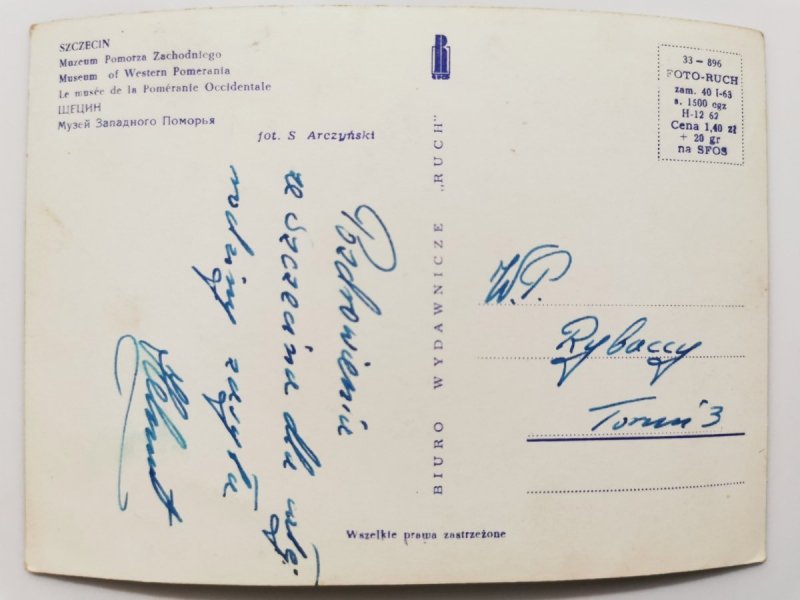 SZCZECIN
Muzeum Pomorza Zachodniego
Museum of Western Pomerania
Le musée de la Poméranie Occidentale
ЩЕЦИН
Музей Западного Поморья
fot. S Arczyński
Pozdrowienia
ze szczecina dla
rodziny
Helmut
BIURO WYDAWNICZE „RUCH"
33-896
FOTO-RUCH
zam. 40 I-63
a. 1500 egz
H-12 62
Cena 1,40 zł
+ 20 gr
na SFOS
W.P.
Rybaccy
Toruń 3
Wszelkie prawa zastrzeżone